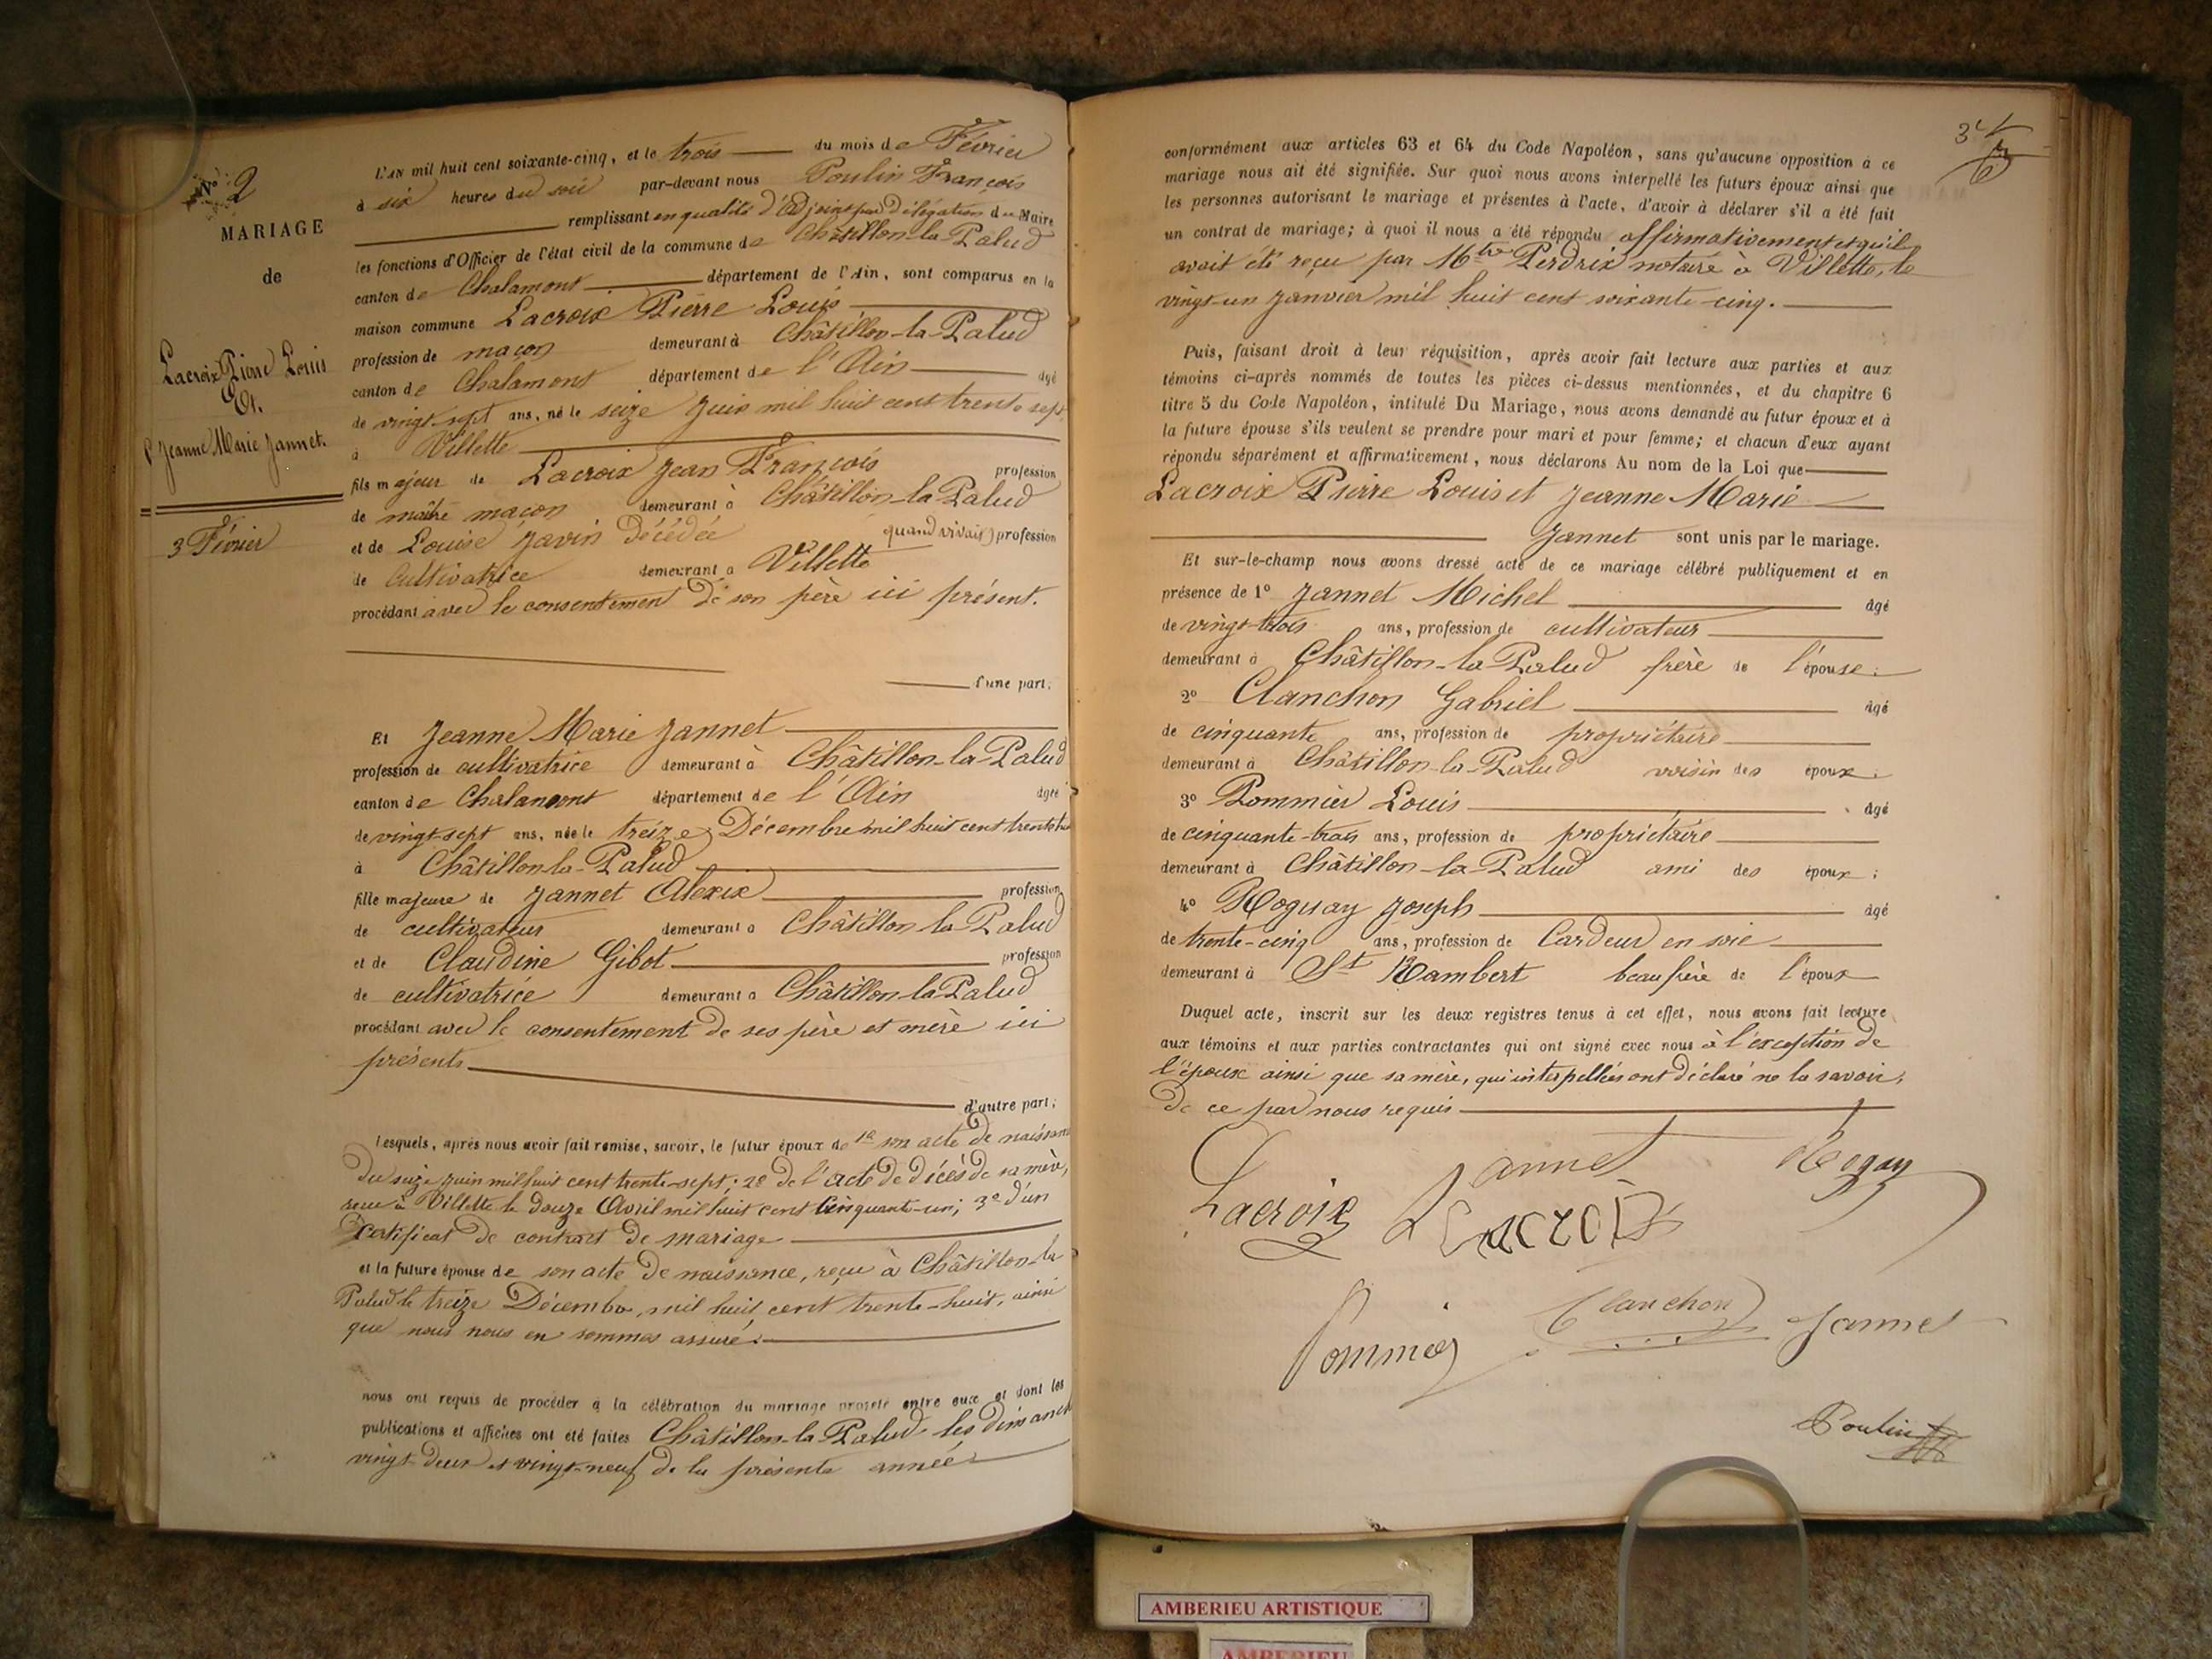 N° 2
MARIAGE
de
Lacroix Pierre Louis
Et.
Jeanne Marie Jannet.
3 Février
L'AN mil huit cent soixante-cinq, et le trois du mois de Février
à six heures du soir par-devant nous Poulin François
remplissant en qualité d'Adjoint par Délégation du Maire
les fonctions d'Officier de l'état civil de la commune de Châtillon-la-Palud
canton de Chalamont département de l'Ain, sont comparus en la
maison commune Lacroix Pierre Louis
profession de maçon demeurant à Châtillon-la-Palud
canton de Chalamont département de l'Ain âgé
de vingt-sept ans, né le seize Juin mil huit cent trente sept
à Villette
fils majeur de Lacroix Jean François profession
de maître maçon demeurant à Châtillon-la-Palud
et de Louise Javin Décédée quand vivait) profession
de Cultivatrice demeurant à Villette
procédant avec le consentement de son père ici présent.
d'une part;
Et Jeanne Marie Jannet
profession de cultivatrice demeurant à Châtillon-la-Palud
canton de Chalamont département de l'Ain âgée
de vingt-sept ans, née le treize Décembre mil huit cent trente
à Châtillon-la-Palud
fille majeure de Jannet Alexix profession
de cultivateur demeurant à Châtillon-la-Palud
et de Claudine Gibot profession
de cultivatrice demeurant à Châtillon-la-Palud
procédant avec le consentement de ses père et mère ici
présents
d'autre part;
Lesquels, après nous avoir fait remise, savoir, le futur époux de 1° son acte de naissance
du seize juin mil huit cent trente-sept; 2° de l'acte de décès de sa mère,
reçu à Villette le douze Avril mil huit cent cinquante-un; 3° d'un
certificat de contract de mariage
et la future épouse de son acte de naissance, reçu à Châtillon-la
Palud le treize Décembre mil huit cent trente-huit, ainsi
que nous nous en sommes assuré.
nous ont requis de procéder à la célébration du mariage projeté entre eux et dont les
publications et affiches ont été faites Châtillon-la-Palud, les dimanch
vingt-deux et vingt-neuf de la présente année
conformément aux articles 63 et 64 du Code Napoléon, sans qu'aucune opposition à ce
mariage nous ait été signifiée. Sur quoi nous avons interpellé les futurs époux ainsi que
les personnes autorisant le mariage et présentes à l'acte, d'avoir à déclarer s'il a été fait
un contrat de mariage; à quoi il nous a été répondu affirmativement et qu'il
avait été reçu par Mtre Perdrix notaire à Villette, le
vingt-un janvier mil huit cent soixante-cinq.
Puis, faisant droit à leur réquisition, après avoir fait lecture aux parties et aux
témoins ci-après nommés de toutes les pièces ci-dessus mentionnées, et du chapitre 6
titre 5 du Code Napoléon, intitulé Du Mariage, nous avons demandé au futur époux et à
la future épouse s'ils veulent se prendre pour mari et pour femme; et chacun d'eux ayant
répondu séparément et affirmativement, nous déclarons Au nom de la Loi que
Lacroix Pierre Louis et Jeanne Marie
Jannet sont unis par le mariage.
Et sur-le-champ nous avons dressé acte de ce mariage célébré publiquement et en
présence de 1° Jannet Michel âgé
de vingt-trois ans, profession de cultivateur
demeurant à Châtillon-la-Palud frère de l'épouse;
2° Clanchon Gabriel âgé
de cinquante ans, profession de propriétaire
demeurant à Châtillon-la-Palud voisin des époux;
3° Pommier Louis âgé
de cinquante-trois ans, profession de propriétaire
demeurant à Châtillon-la-Palud ami des époux;
4° Roguay Joseph âgé
de trente-cinq ans, profession de Cardeur en soie
demeurant à St Rambert beau frère de l'époux
Duquel acte, inscrit sur les deux registres tenus à cet effet, nous avons fait lecture
aux témoins et aux parties contractantes qui ont signé avec nous à l'exception de
l'épouse ainsi que sa mère, qui interpellées ont déclaré ne la savoir,
de ce par nous requis
Jannet Rogay
Lacroix Lacroix
Clanchon Jannet
Pommier
Poulin
AMBERIEU ARTISTIQUE
AMBERIEU